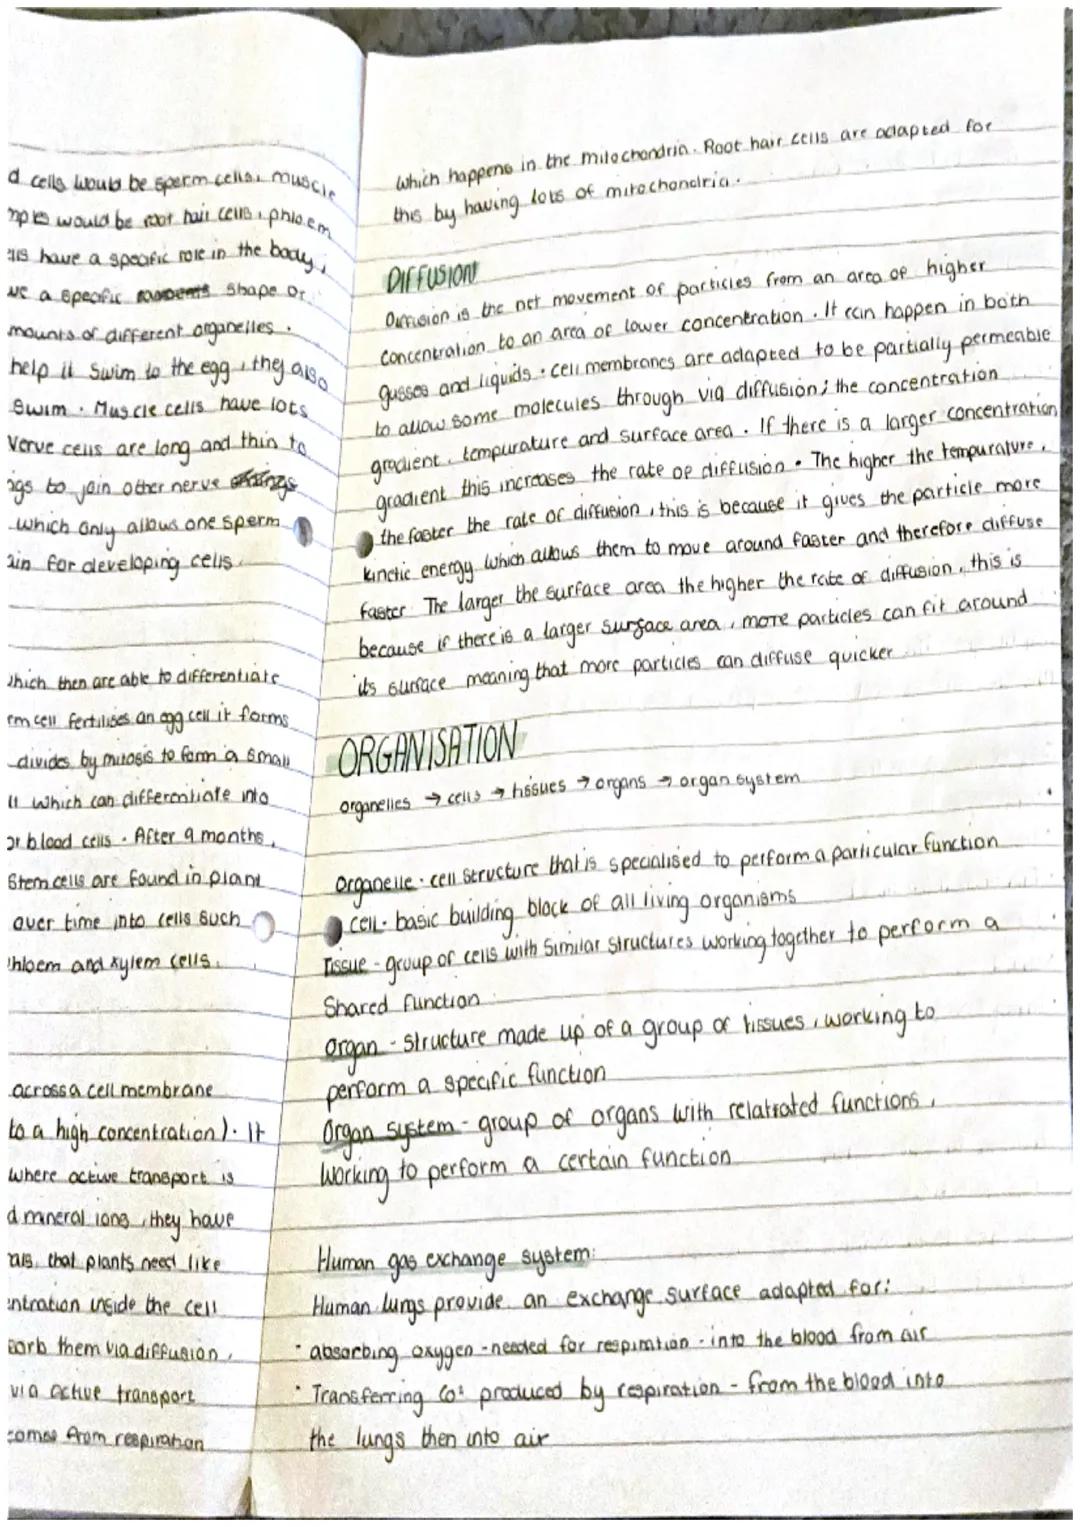 d cells would be sperm cells, muscle
mples would be root hair cells, phloem
ells have a specific role in the body,
ve a specific shape or
mounts of different organelles.
help it swim to the egg, they also
swim. Muscle cells have lots
Nerve cells are long and thin to
ngs to join other nerve endings
which only allows one sperm
ain for developing cells.
which then are able to differentiate
rm cell fertilises an egg cell it forms
divides by mitosis to form a small
ll which can differentiate into
or blood cells. After 9 months,
Stem cells are found in plant
over time into cells such
phloem and xylem cells.
across a cell membrane
to a high concentration). It
where active transport is
d mineral ions, they have
als, that plants need like
entration inside the cell
sorb them via diffusion,
via active transport
comes from respiration
which happens in the mitochondria. Root hair cells are adapted for
this by having lots of mitochondria.
DIFFUSION
Diffusion is the net movement of particles from an area of higher
concentration to an area of lower concentration. It can happen in both
gasses and liquids. cell membranes are adapted to be partially permeable
to allow some molecules through via diffusion; the concentration
gradient, tempurature and surface area. If there is a larger concentration
gradient this increases the rate of diffusion. The higher the tempurature,
the faster the rate of diffusion, this is because it gives the particle more
kinetic energy which allows them to move around faster and therefore diffuse
faster. The larger the surface area the higher the rate of diffusion, this is
because if there is a larger surface area, more particles can fit around
its surface meaning that more particles can diffuse quicker
ORGANISATION
organelles → cells → tissues → organs → organ system
organelle - cell structure that is specialised to perform a particular function
cell - basic building block of all living organisms
Tissue - group of cells with similar structures working together to perform a
shared function
organ - structure made up of a group of tissues, working to
perform a specific function
Organ system - group of organs with relatrated functions,
working to perform a certain function
Human gas exchange system:
Human lungs provide an exchange surface adapted for:
• absorbing oxygen - needed for respiration - into the blood from air
• Transferring CO² produced by respiration - from the blood into
the lungs then into air